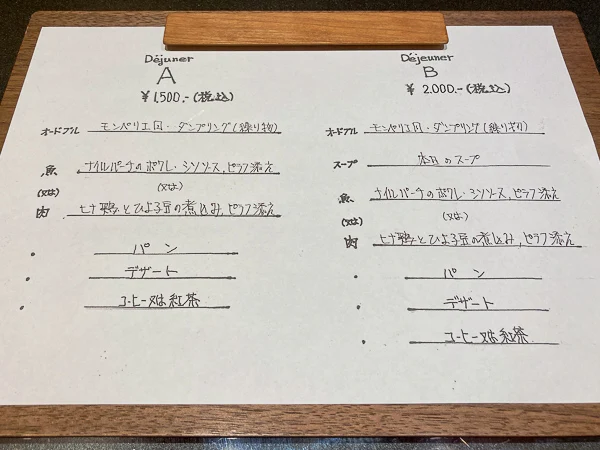 Déjuner
A
¥1,500.-(税込)
オードブル モンペリエ風・ダンプリング(練り物)
魚 ナイルパーチのポワレ・シソソース、ピラフ添え
(又は) (又は)
肉 ヒナ鶏とひよこ豆の煮込み、ピラフ添え
・ パン
・ デザート
・ コーヒー又は紅茶
Déjeuner
B
¥2,000.-(税込)
オードブル モンペリエ風・ダンプリング(練り物)
スープ 本日のスープ
魚 ナイルパーチのポワレ・シソソース、ピラフ添え
(又は) (又は)
肉 ヒナ鶏とひよこ豆の煮込み、ピラフ添え
・ パン
・ デザート
・ コーヒー又は紅茶